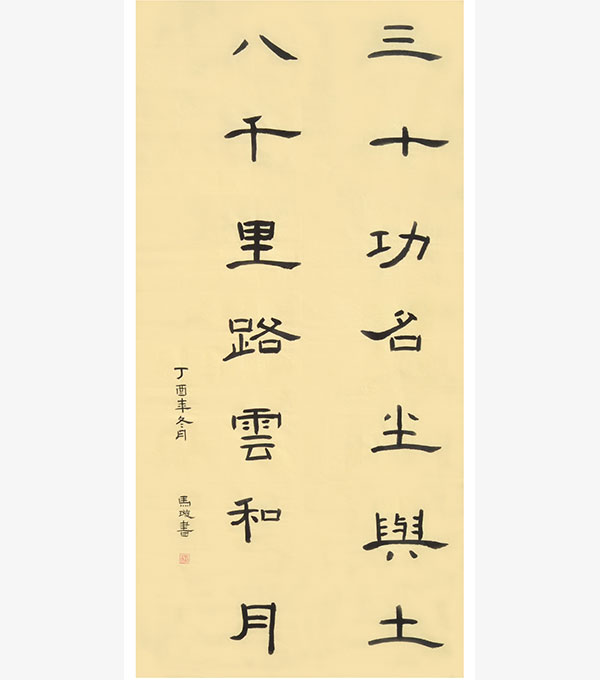 三十功名尘與土
八千里路雲和月
丁酉年冬月
馬璇書